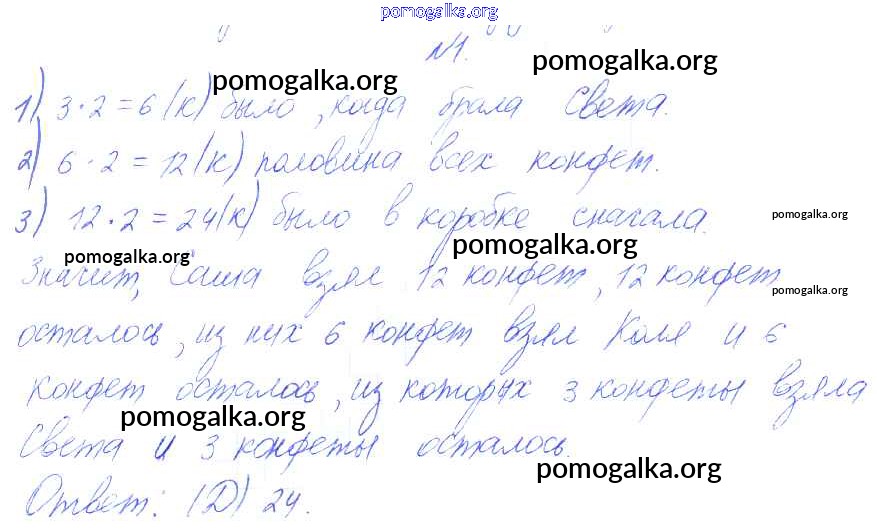 pomogalka.org
№1.
pomogalka.org pomogalka.org
1) 3·2=6 (к) было, когда брала Света.
2) 6·2=12 (к) половина всех конфет.
3) 12·2=24 (к) было в коробке сначала.
pomogalka.org
pomogalka.org pomogalka.org
Значит, Саша взял 12 конфет, 12 конфет
pomogalka.org
осталось, из них 6 конфет взял Коля и 6
конфет осталось, из которых 3 конфеты взяла
pomogalka.org
Света и 3 конфеты осталось.
pomogalka.org
Ответ: (D) 24.